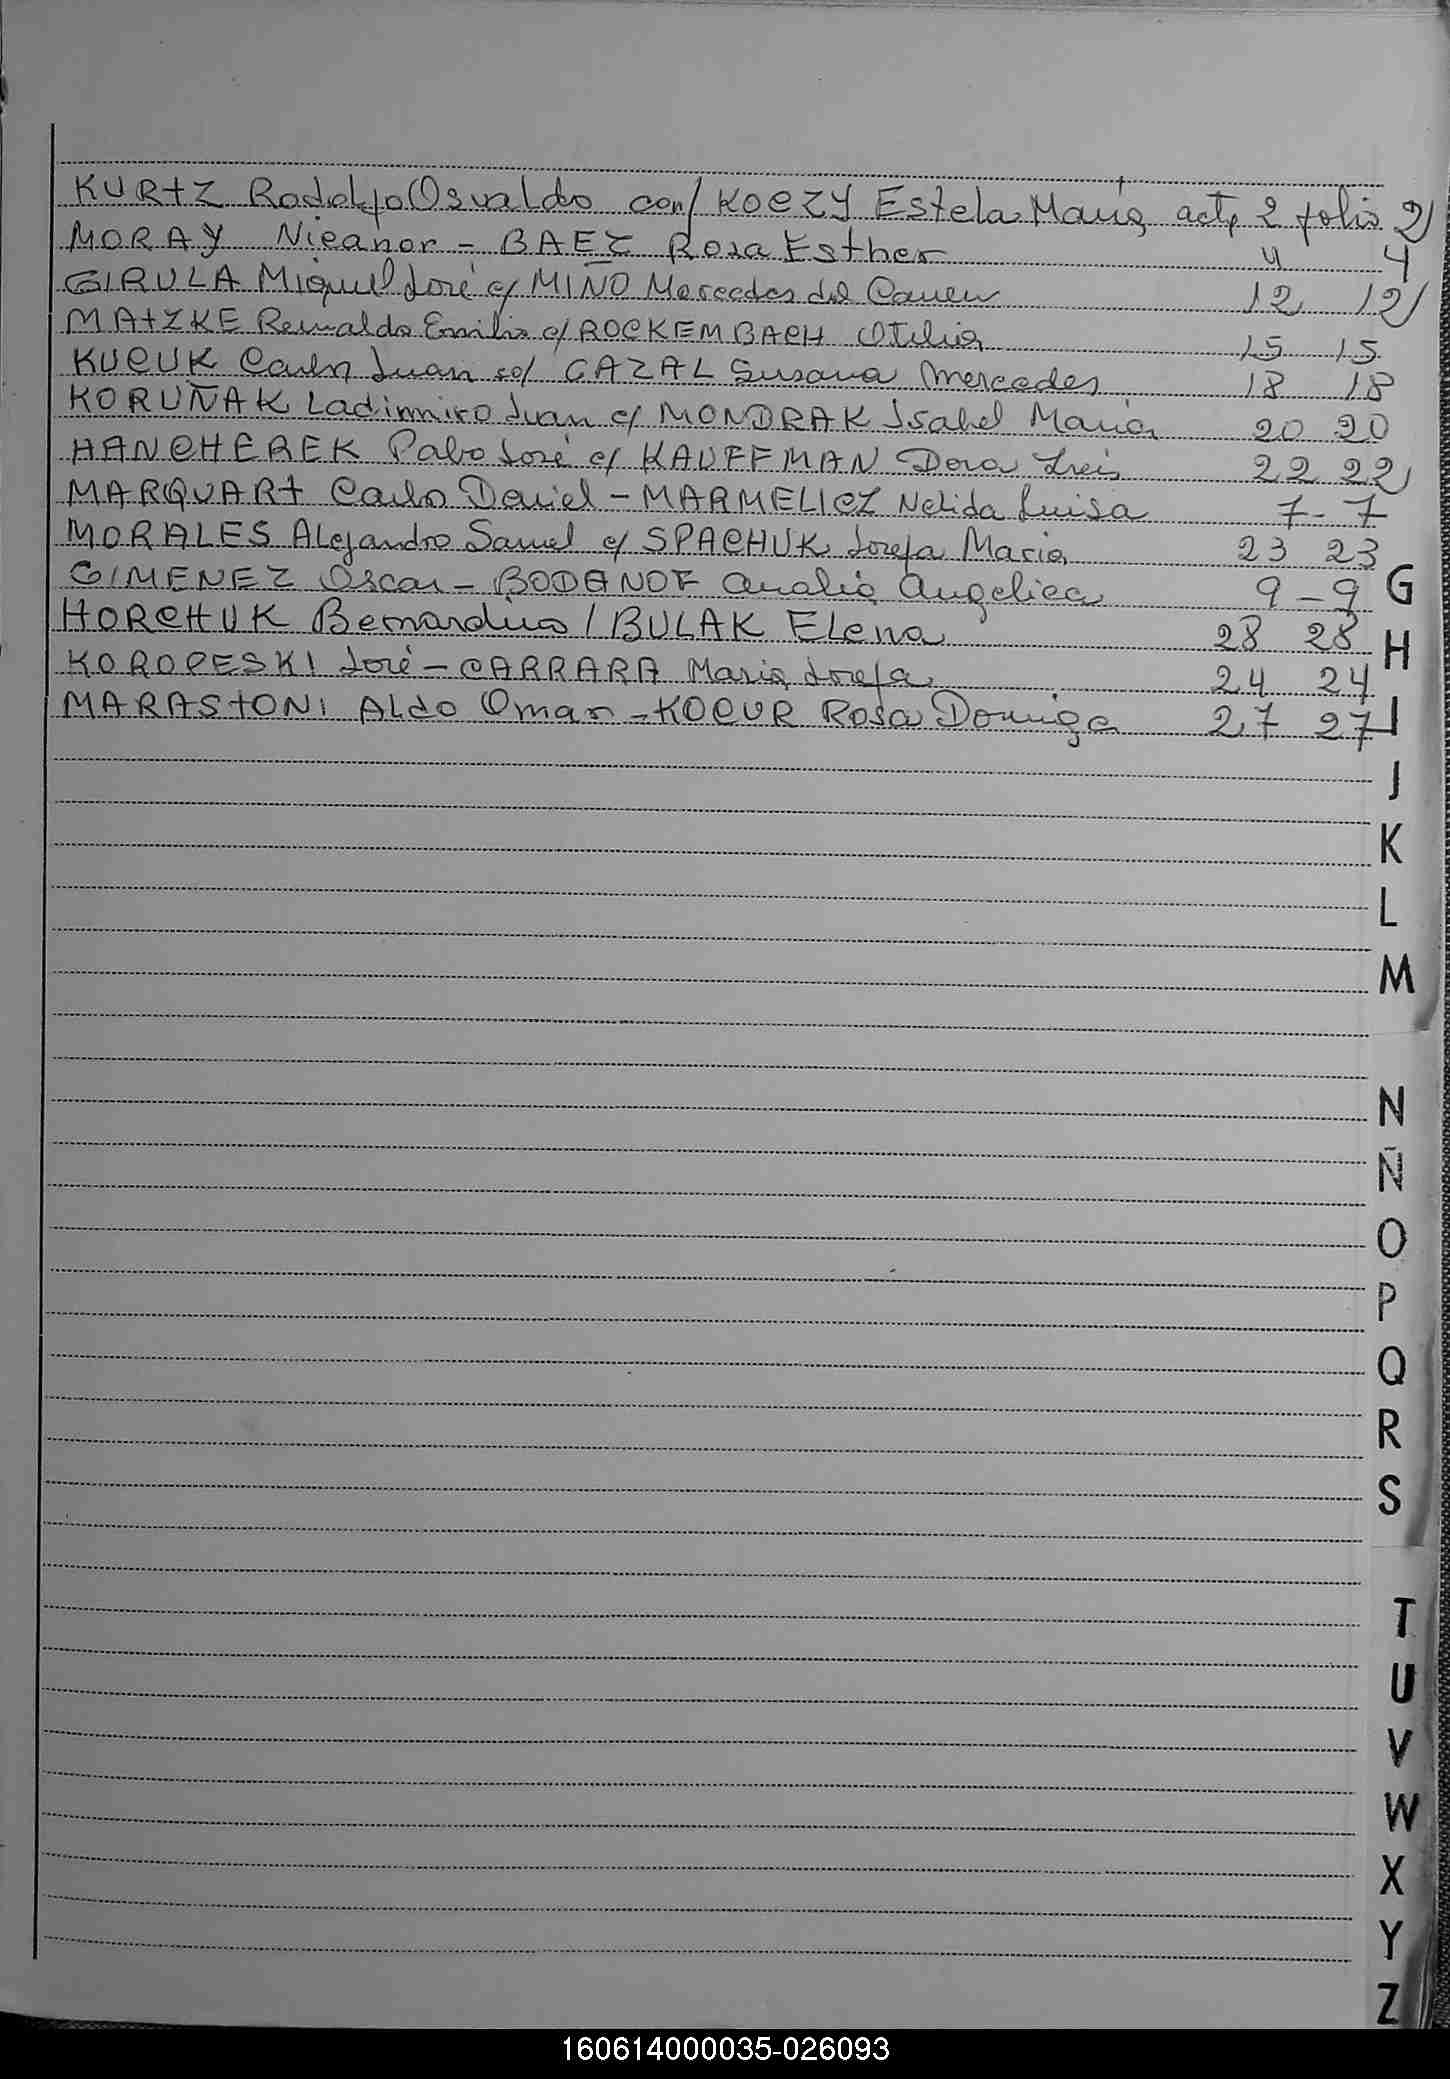 KURTZ Rodolfo Osvaldo con/ KOCZY Estela Maria acta 2 folio 2
MORAY Nicanor - BAEZ Rosa Esther 4 4
GIRULA Miguel José c/ MIÑO Mercedes del Carmen 12 12
MATZKE Reinaldo Emilio c/ ROCKEMBACH Otilia 15 15
KUCUK Carlos Juan c/ CAZAL Susana Mercedes 18 18
KORUÑAK Ladimiro Juan c/ MONDRAK Isabel Maria 20 20
HANCHEREK Pablo José c/ KAUFFMAN Dora 22 22
MARQUART Carlos Daniel - MARMELICZ Nelida Luisa 7 - 7
MORALES Alejandro Samuel c/ SPACHUK Josefa Maria 23 23
GIMENEZ Oscar - BODANOF Analia Angelica 9 - 9
HORCHUK Bernardino / BULAK Elena 28 28
KOROPESKI José - CARRARA Maria Josefa 24 24
MARASTONI Aldo Omar - KOCUR Rosa Dominga 27 27
G
H
I
J
K
L
M
N
Ñ
O
P
Q
R
S
T
U
V
W
X
Y
Z
160614000035-026093